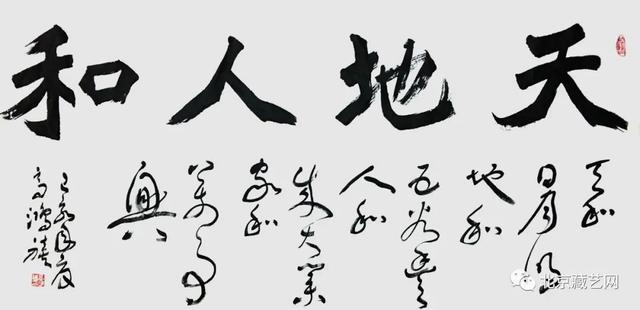 天地人和
天和
日月明
地和
五谷丰
人和
成大業
家和
萬事
興
北京藏艺网